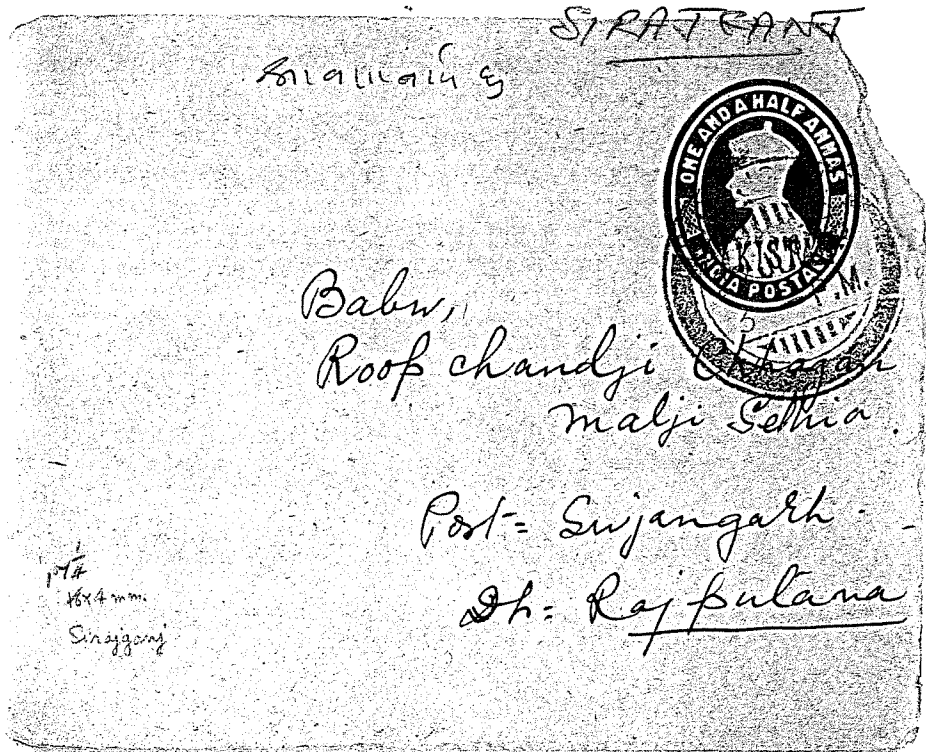 SIRAJGANJ
ONE AND A HALF ANNAS
INDIA POSTAGE
P.M.
5
Babu,
Roop chandji Chhagan
malji Sethia.
Post= Sujangarh.
Dt= Rajputana
16x4 mm.
Sirajganj